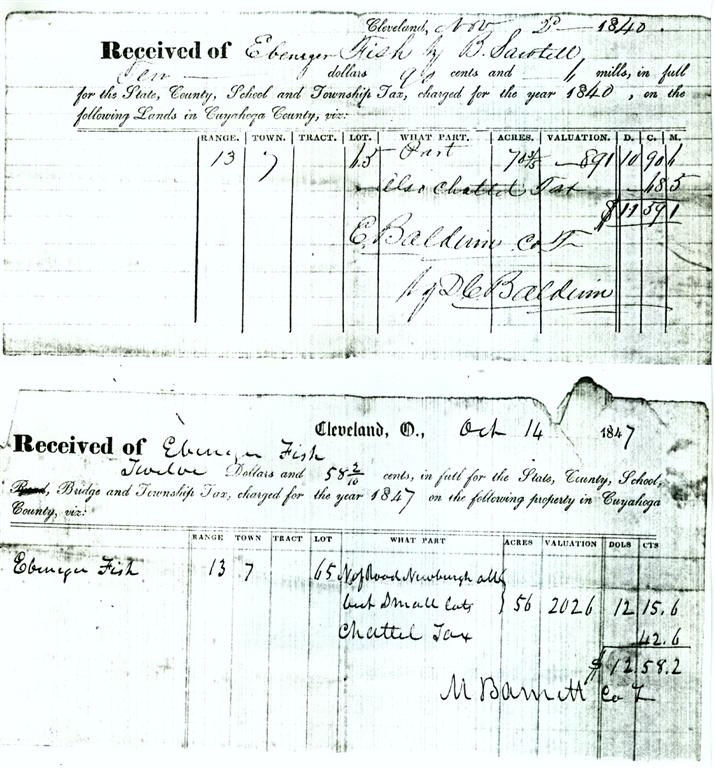 Cleveland, Nov 2d 1840.
Received of Ebenezer Fish by B. Sawtell
Ten dollars 90 cents and 6 mills, in full
for the State, County, School and Township Tax, charged for the year 1840, on the
following Lands in Cuyahoga County, viz:
RANGE. TOWN. TRACT. LOT. WHAT PART. ACRES. VALUATION. D. C. M.
13 7 65 Part 70 891 10 90 6
also Chattel Tax 68 5
$ 11 59 1
E Baldwin Co T
By D C Baldwin
Cleveland, O., Oct 14 1847
Received of Ebenezer Fish
Twelve Dollars and 58 2/10 cents, in full for the State, County, School,
Road, Bridge and Township Tax, charged for the year 1847 on the following property in Cuyahoga
County, viz:
RANGE TOWN TRACT LOT WHAT PART ACRES VALUATION DOLS CTS
Ebenezer Fish 13 7 65 N of Road Newburgh all
but Small Lots 56 2026 12 15.6
Chattel Tax 42.6
$ 12 58.2
M Barnett Co T